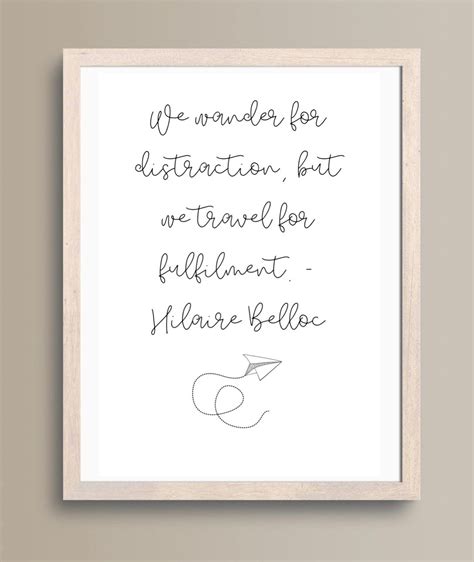 We wander for
distraction, but
we travel for
fulfilment. -
Hilaire Belloc